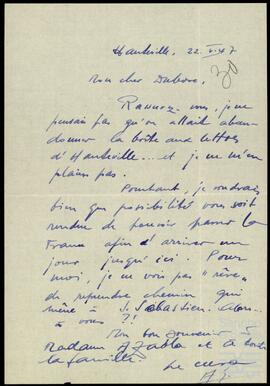 Hauteville, 22. V. 47
30
Mon cher Dubosc.
Rassurez-vous, je ne
pensais pas qu'on allait aban-
donner la boîte aux lettres
d'Hauteville... et je ne m'en
plains pas.
Pourtant, je voudrais
bien que possibilité vous soit
rendue de pouvoir passer la
France afin d'arriver un
jour jusqu'ici. Pour
moi, je ne vois pas "rêve"
de reprendre chemin qui
mène à S. Sébastien. Alors
à vous ?!
Mon bon souvenir à
Madame
la famille.